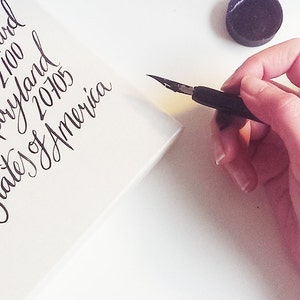 2100
aryland
20705
States of America